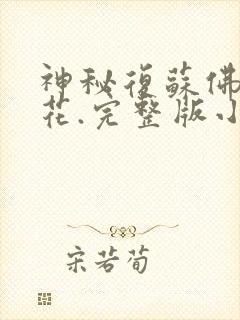 神秘復蘇佛
花.完整版小
宋若荀